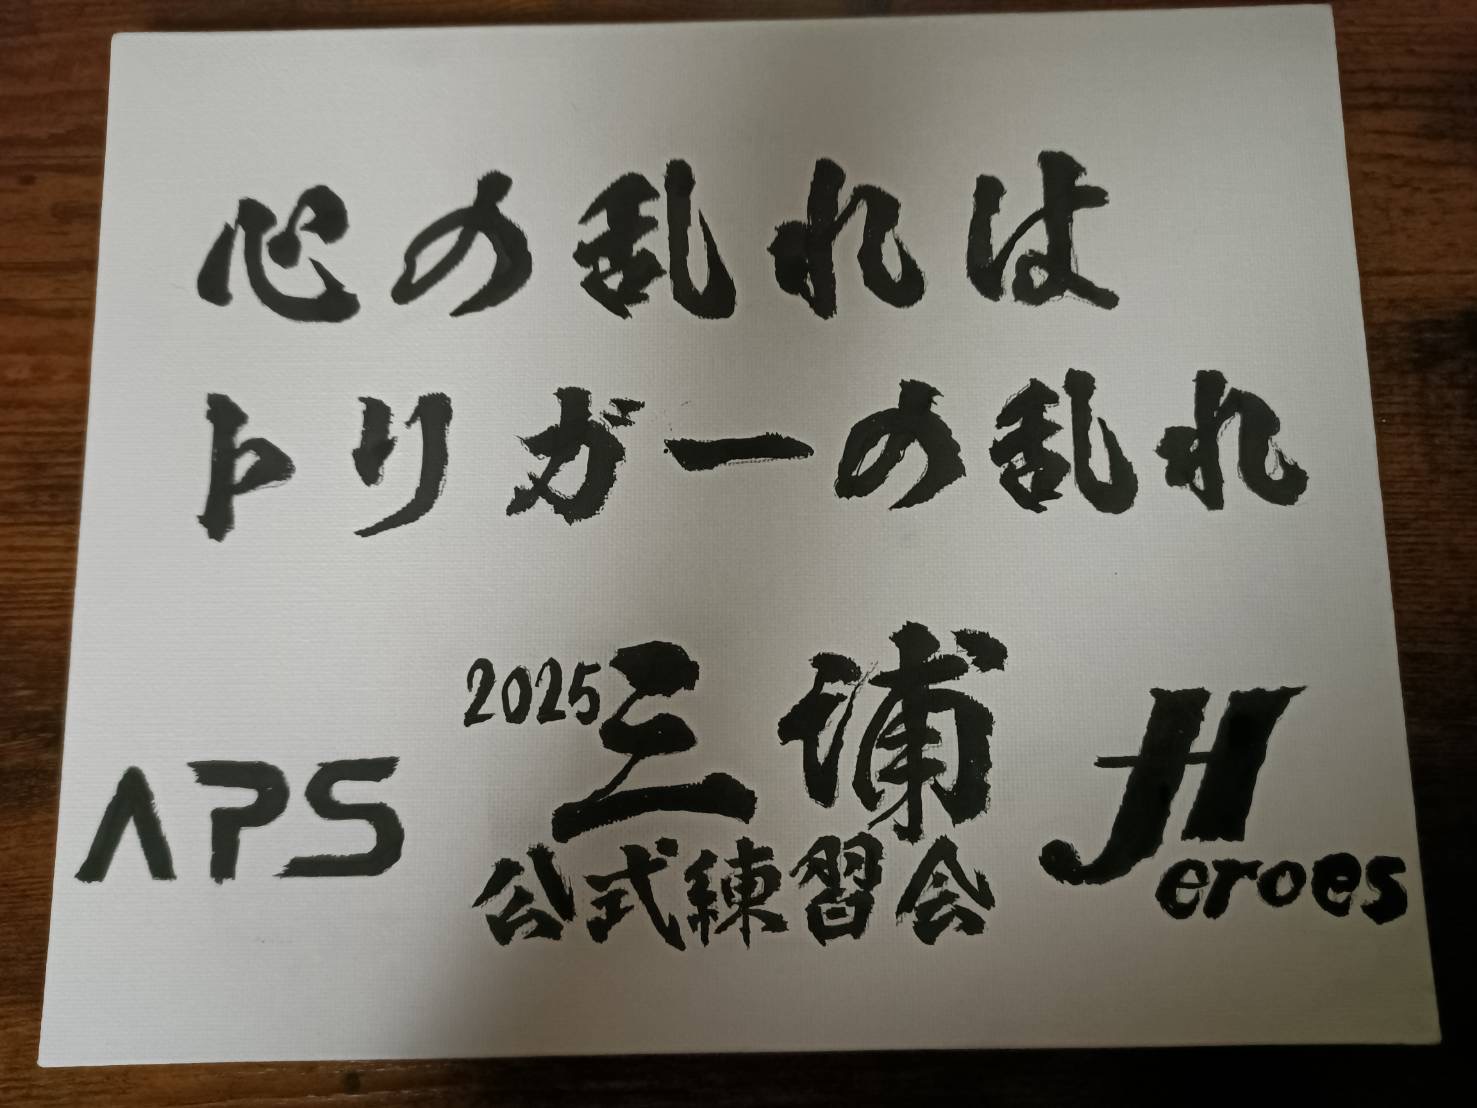 心の乱れは
トリガーの乱れ
2025三浦
公式練習会
APS
Heroes